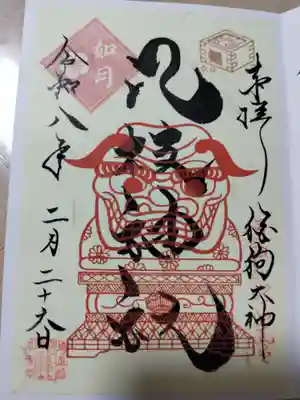 奉拝
狛狗大神
八枝神社
如月
令和八年
二月二十六日